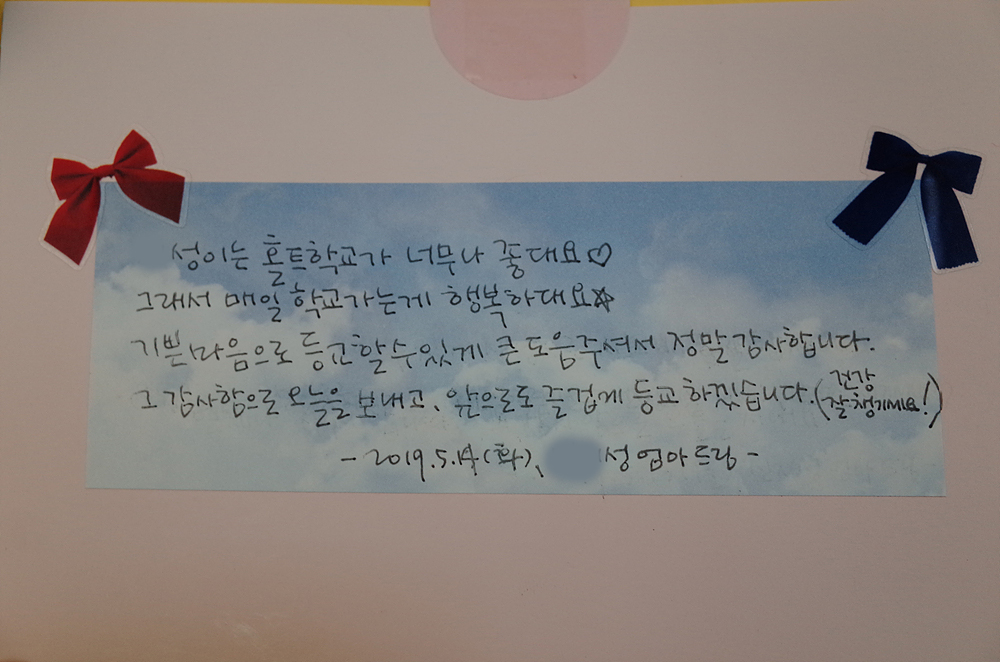 성이는 홀트학교가 너무나 좋대요♡
그래서 매일 학교가는게 행복하대요☆
기쁜마음으로 등교할 수 있게 큰 도움주셔서 정말 감사합니다.
그 감사함으로 오늘을 보내고, 앞으로도 즐겁게 등교 하겠습니다. (건강 잘 챙기세요!)
- 2019.5.14(화), 성 엄마 드림 -